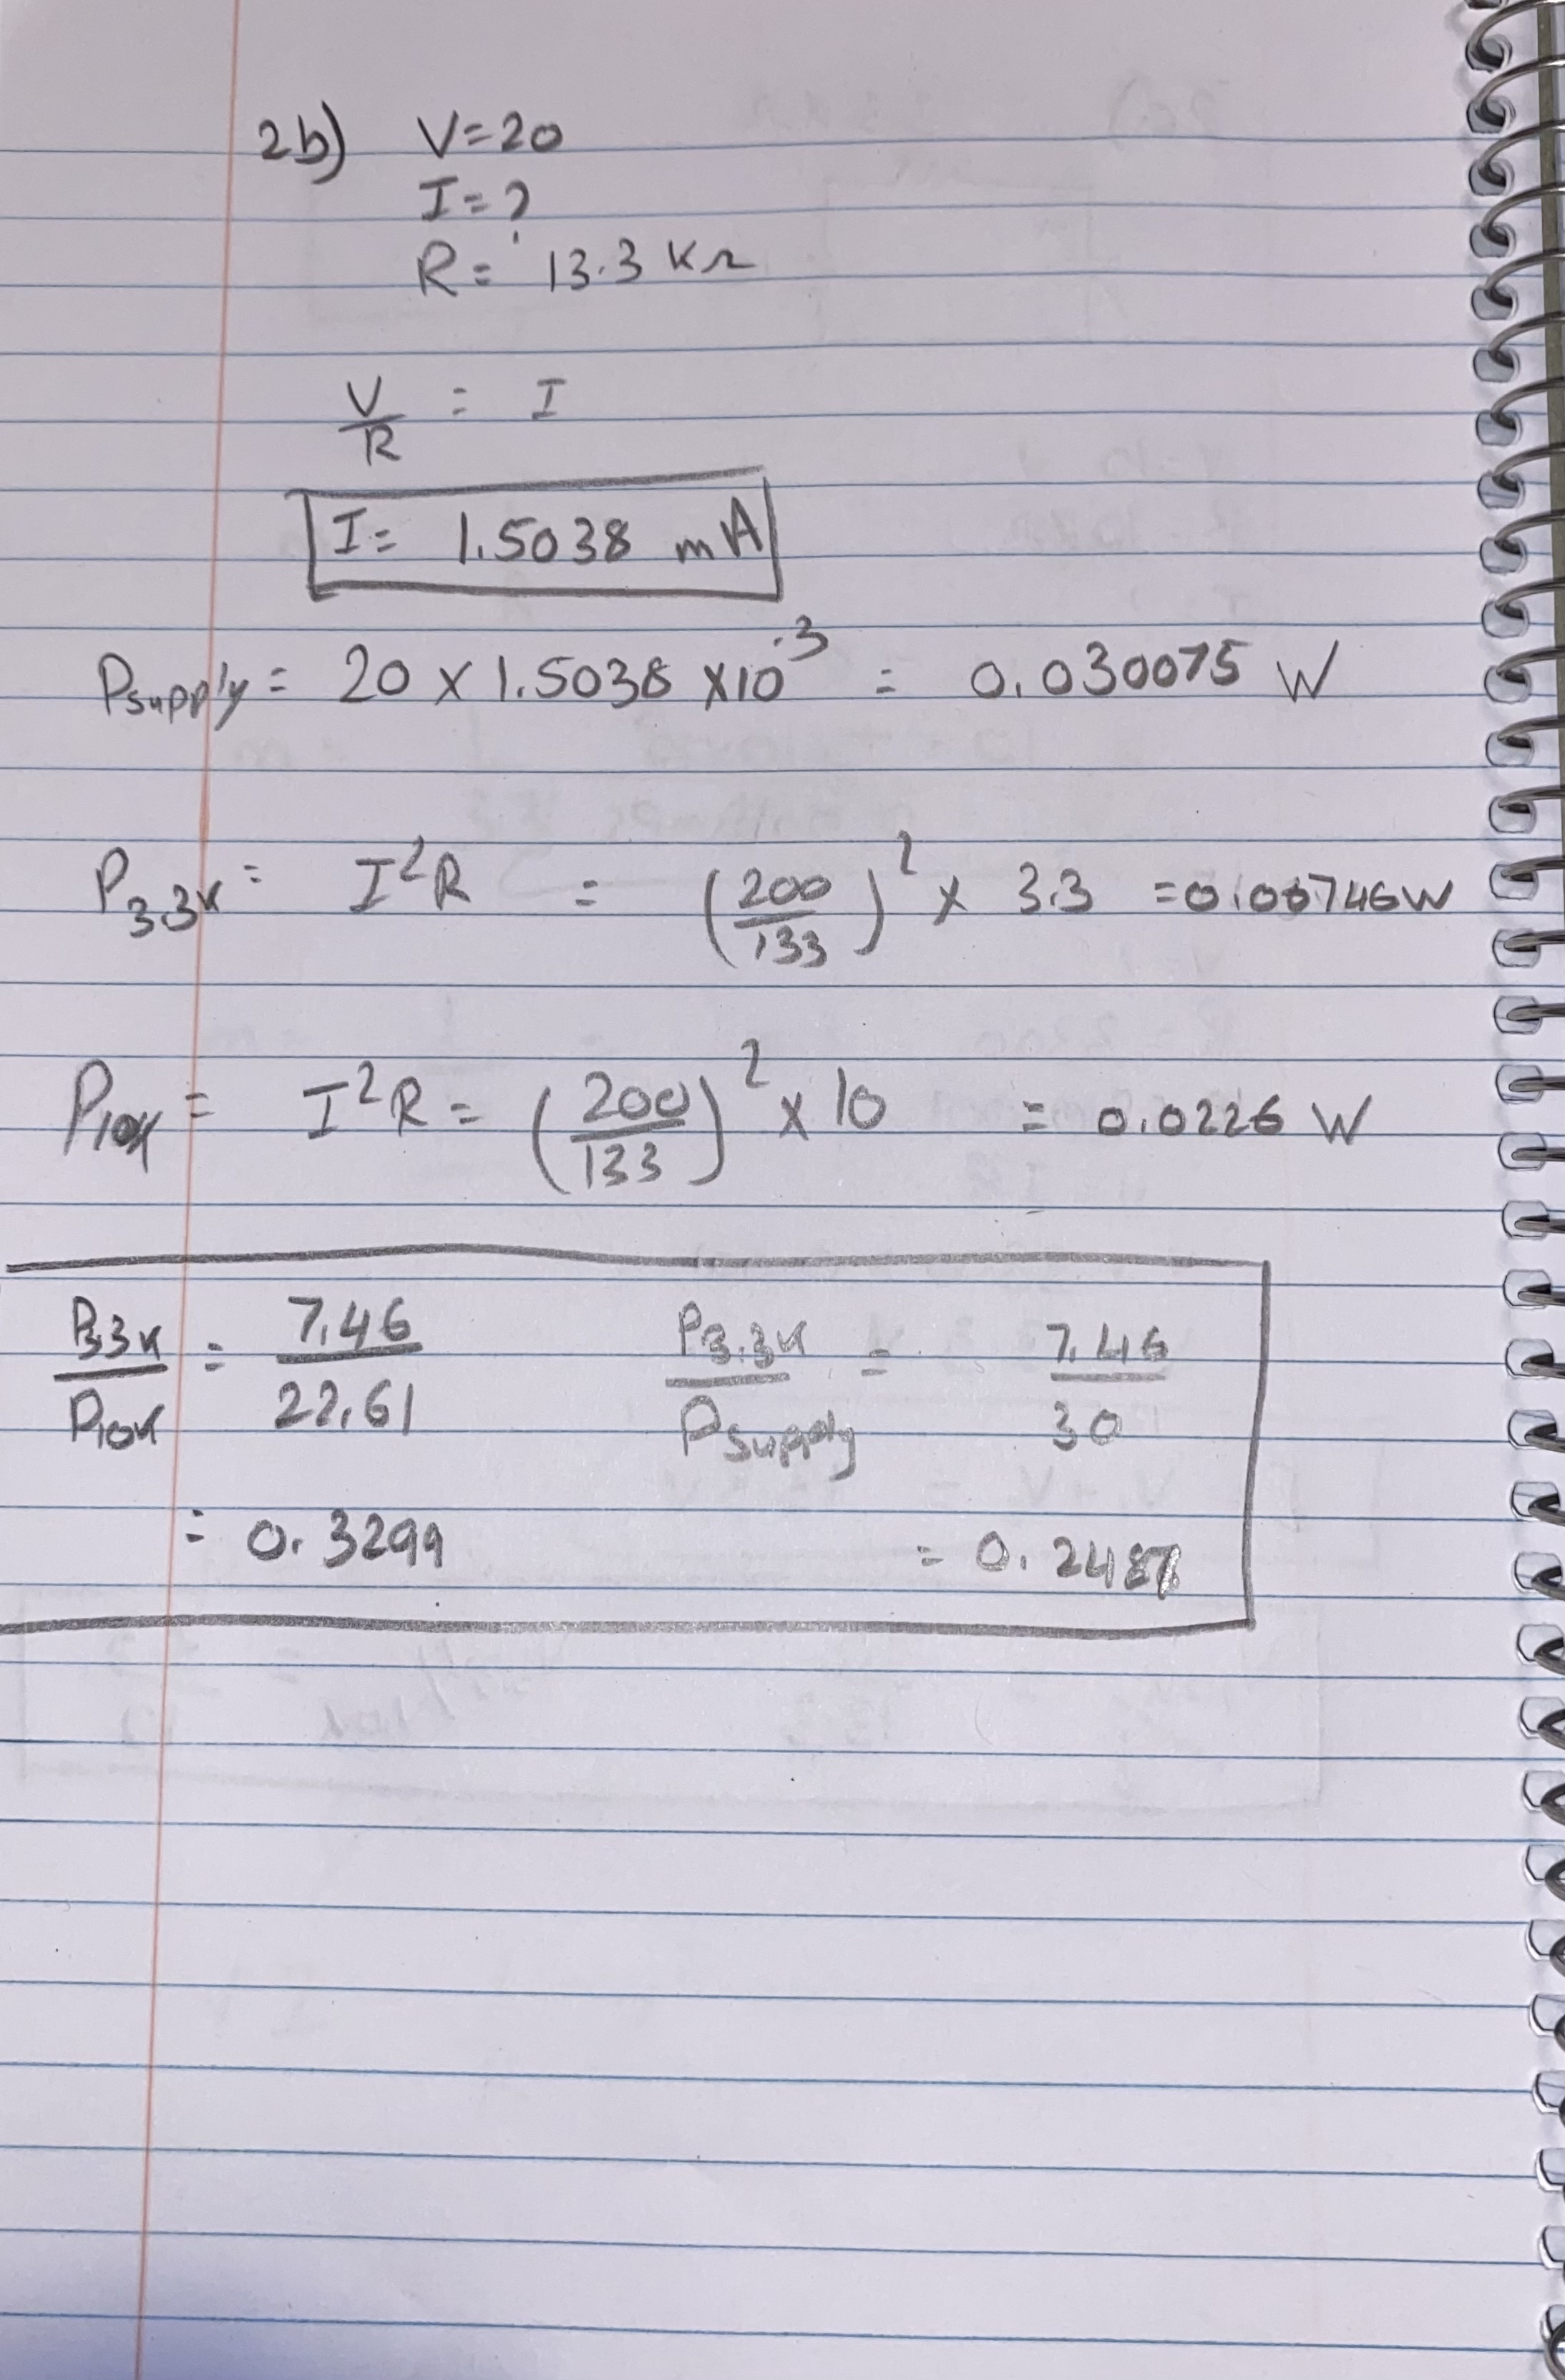 2b) V=20
I=?
R= 13.3 KΩ
V/R = I
I= 1.5038 mA
Psupply= 20 x 1.5038 x10^-3 = 0.030075 W
P3.3K= I²R = (200/133)² x 3.3 =0.00746W
P10K= I²R= (200/133)² x 10 = 0.0226 W
P3.3K/P10K = 7.46/22.61 P3.3K/Psupply = 7.46/30
= 0.3299 = 0.2487